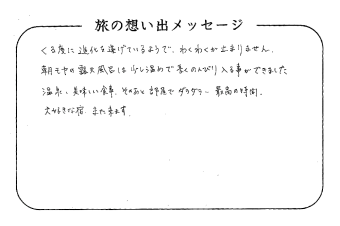 旅の想い出メッセージ
くる度に進化を遂げているようで、わくわくが止まりません。
朝モヤの露天風呂は少し温めで長くのんびり入る事ができました
温泉、美味しい食事、そのあと部屋でダラダラ〜最高の時間。
大好きな宿。また来ます。